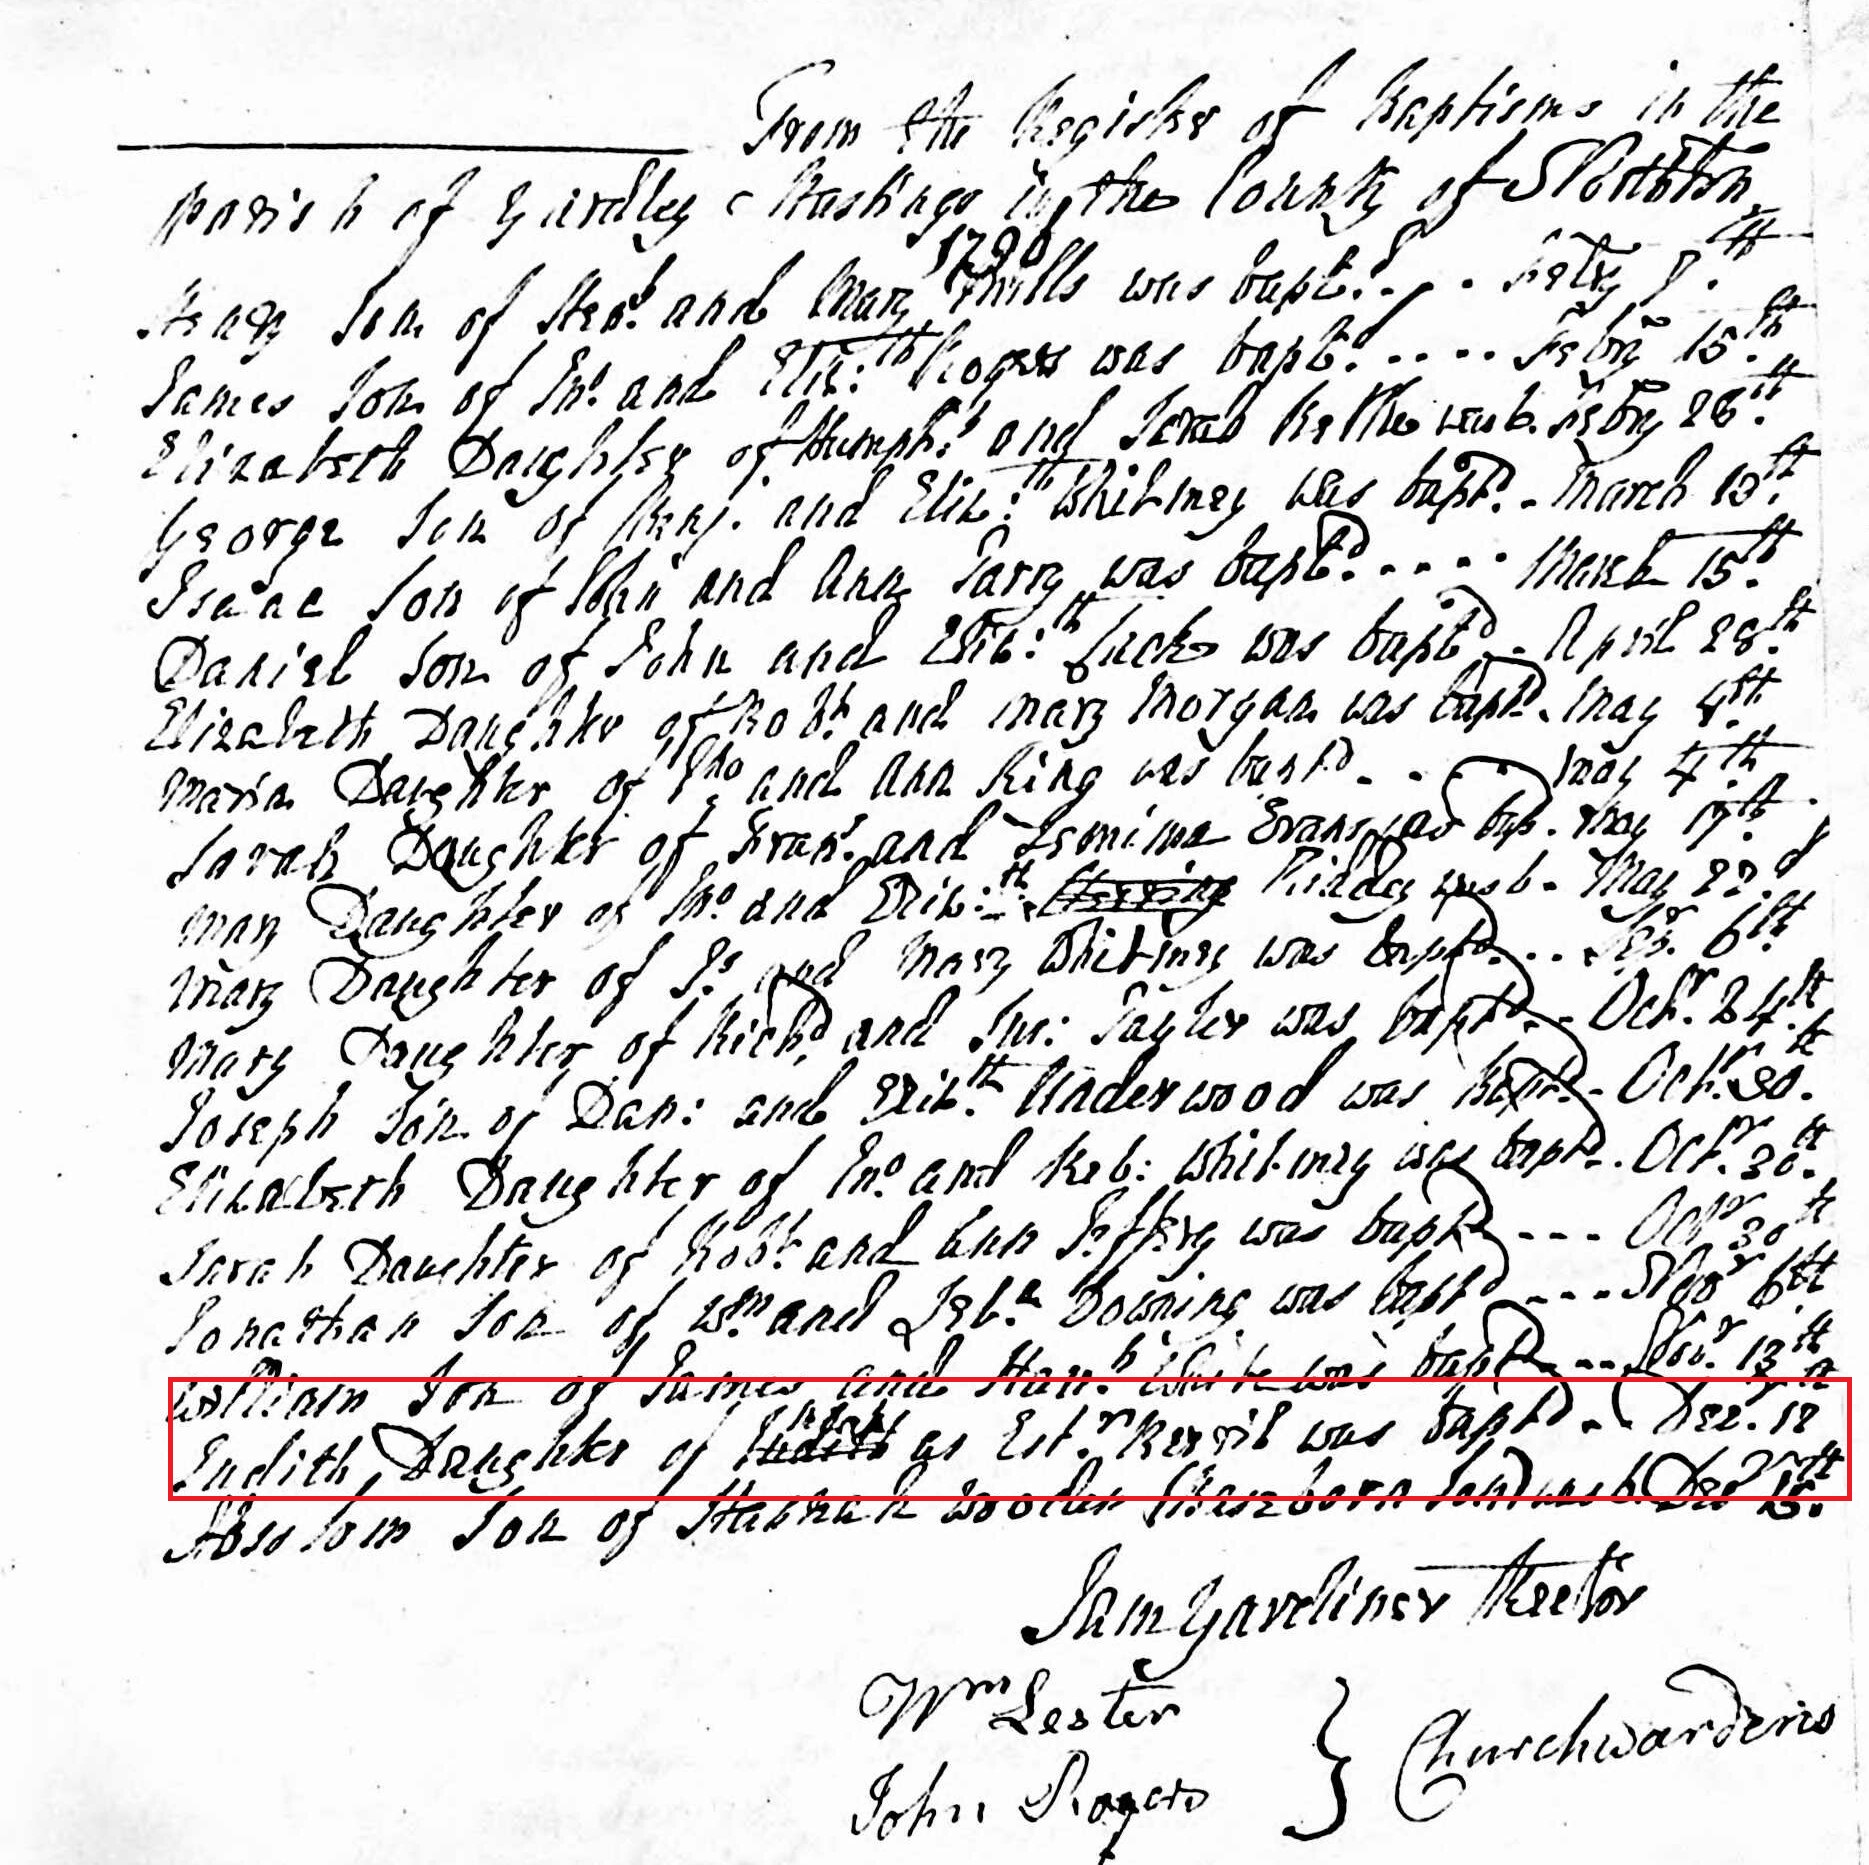 From the Register of Baptisms in the
parish of Yardley Hastings in the County of Northton
1790
Henry Son of Hen.y and Mary Mills was bapt.d Feby 7.th
James Son of Jno. and Eliz:th Rogers was bapt.d .... Febry 15.th
Elizabeth Daughter of Humph.y and Sarah Kettle was b. Febry 28.th
George Son of Benj. and Eliz:th Whitmey was bapt.d - March 13.th
Isaac Son of John and Ann Parry was bapt.d ..... March 15.th
Daniel Son of John and Eliz:th Luck was bapt.d - April 28.th
Elizabeth Daughter of Robt. and Mary Morgan was bapt.d - May 4.th
Maria Daughter of Tho and Ann King was bapt.d - - - May 4.th
Sarah Daughter of Fran.s and Jemima Evans was bap. May 17.th
Mary Daughter of Jno. and Eliz:th Pindey was b - May 22.d
Mary Daughter of Js. and Mary Whitmey was bapt.d ... Sep.r 6.th
Mary Daughter of Rich.d and Sus: Tayler was bapt.d - - Oct.r 24.th
Joseph Son of Dan: and Eliz.th Underwood was bapt.d - Oct.r 30.th
Elizabeth Daughter of Jno. and Reb: Whitmey was bapt.d - Oct.r 30.th
Sarah Daughter of Robt. and Ann Jeffery was bapt.d - - - Oct.r 30th
Jonathan Son of Wm. and Deb.a Downing was bapt.d - - - Nov.r 6.th
William Son of James and Han.h White was bapt.d - - - Nov.r 13.th
Judith Daughter of Judith as Est.r was bapt.d - - Dec.r 12th
Absolom Son of Hannah Wooden (Base born Son) was b. Dec
Sam Gardiner Rector
Wm Lester
John Rogers } Churchwardens